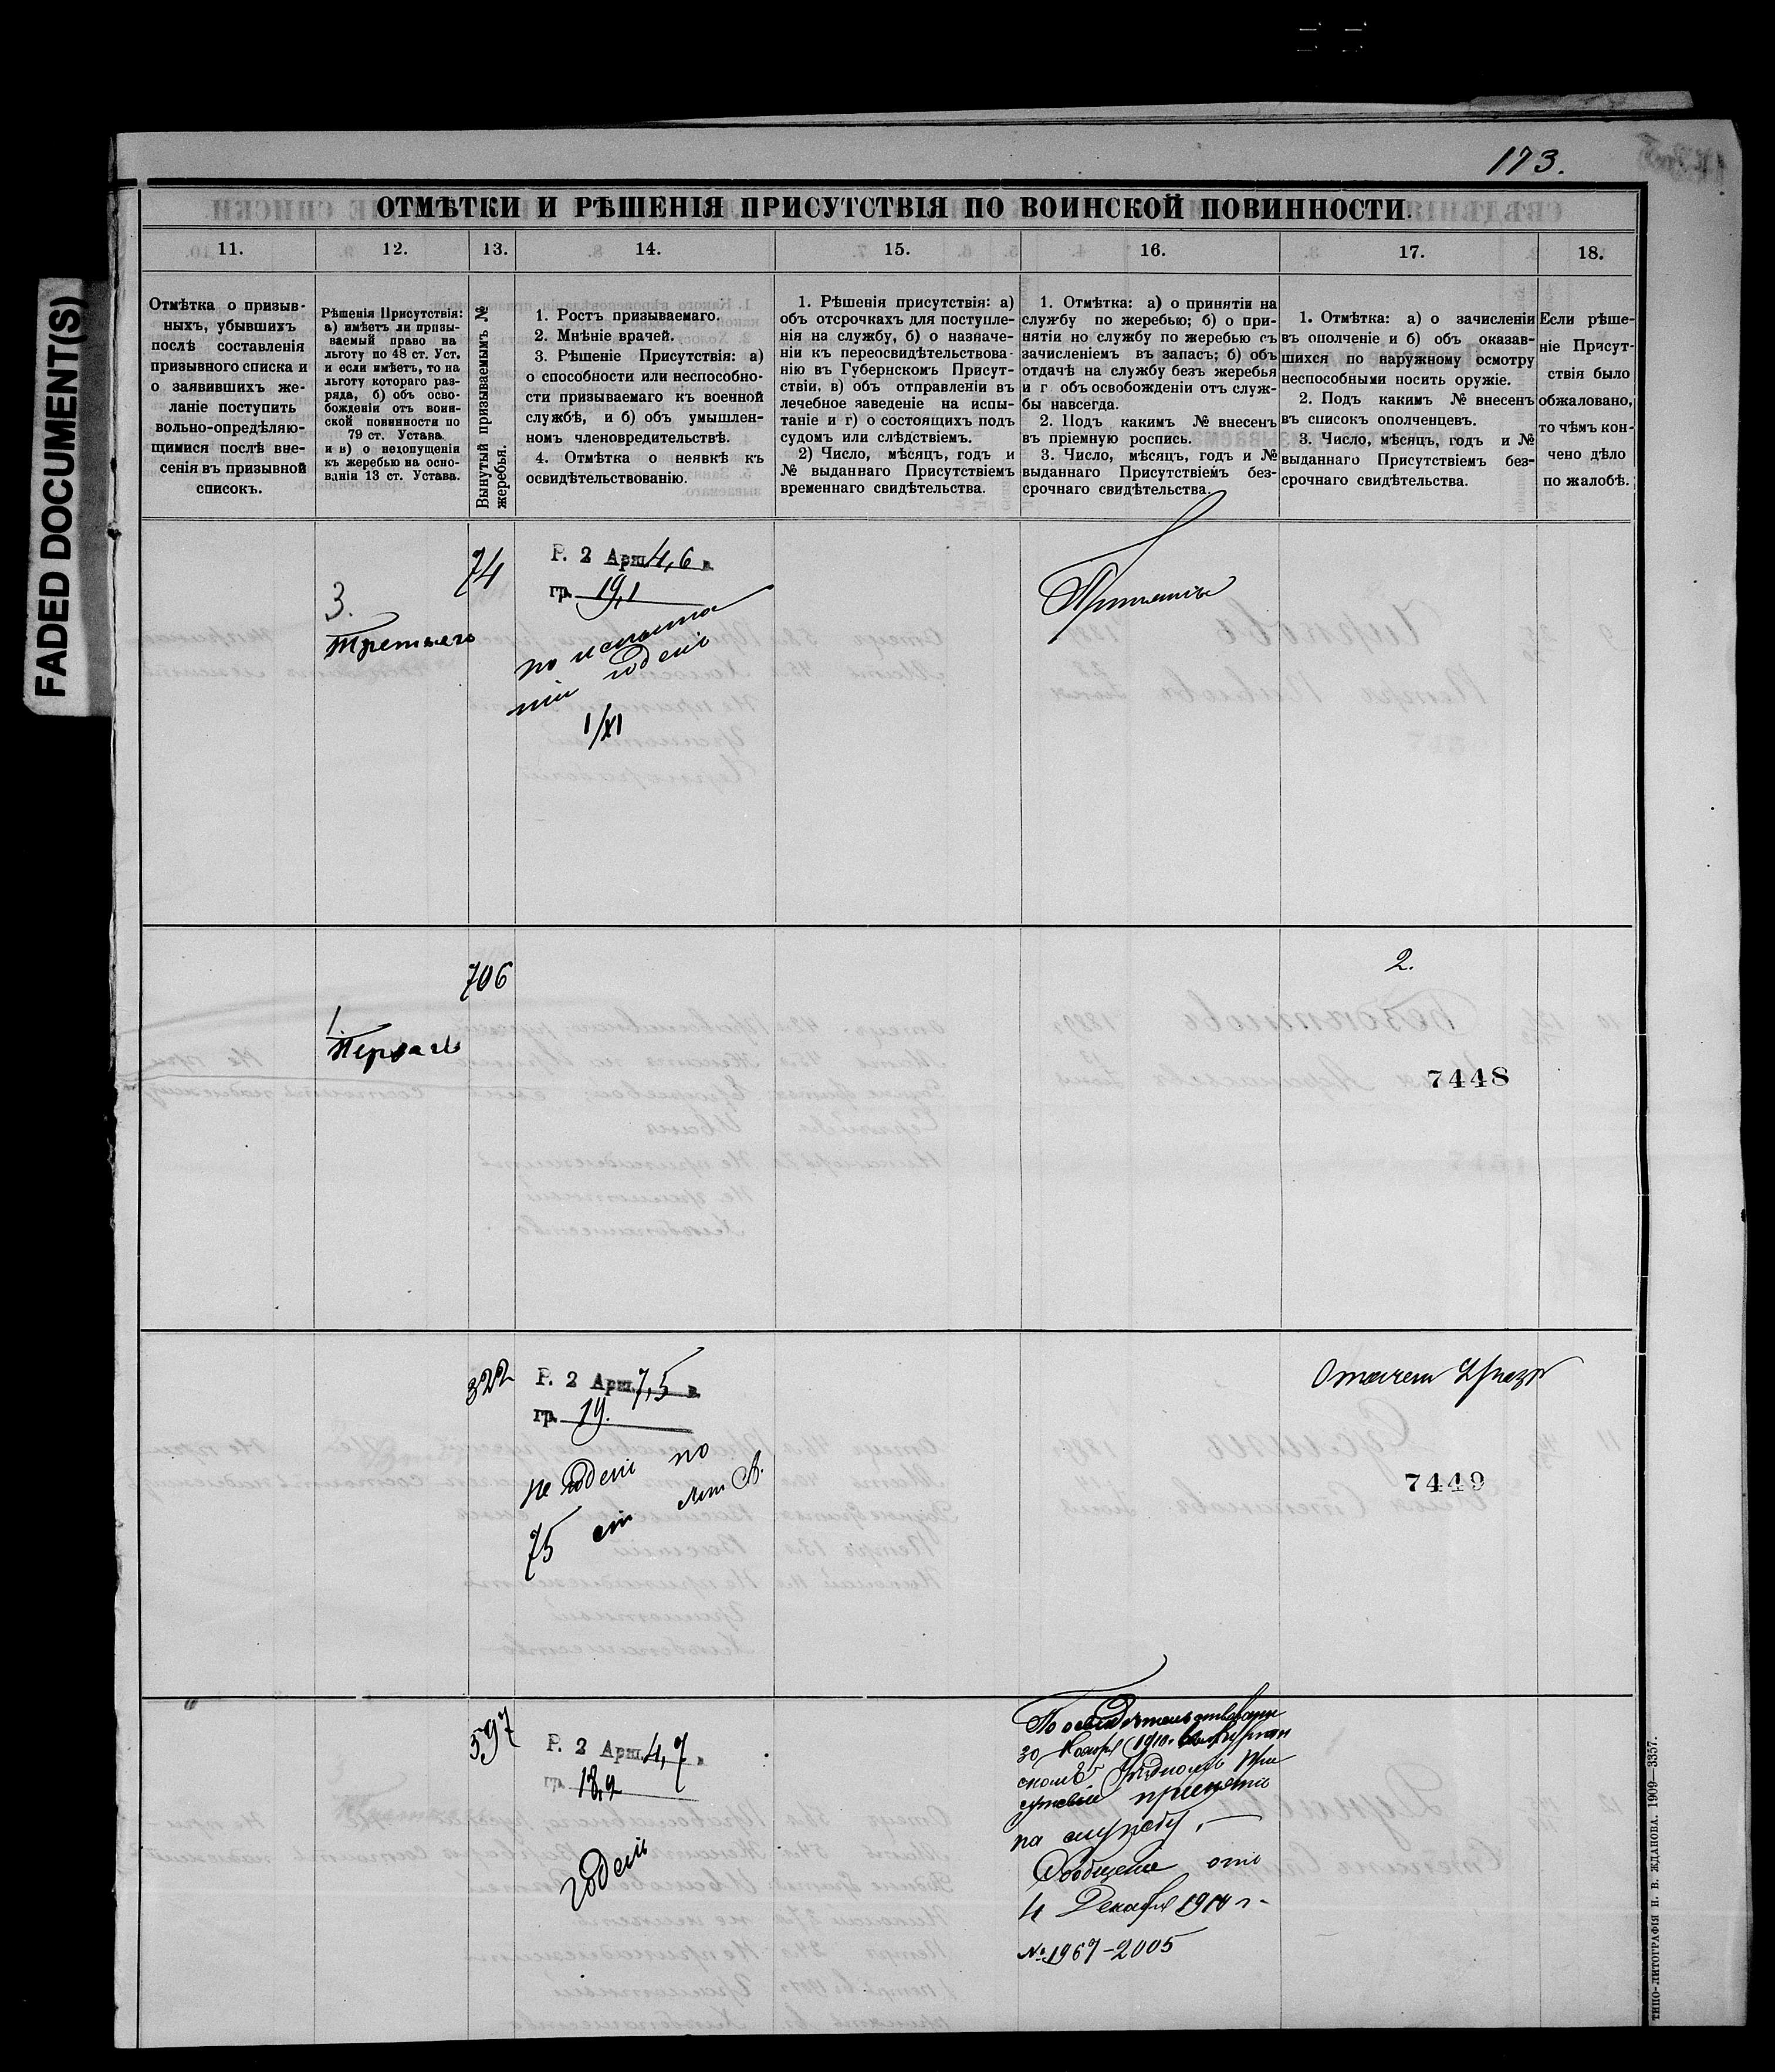 FADED DOCUMENT(S)
173.
ОТМѢТКИ И РѢШЕНІЯ ПРИСУТСТВІЯ ПО ВОИНСКОЙ ПОВИННОСТИ.
11.
12.
13.
14.
15.
16.
17.
18.
Отмѣтка о призыв-
ныхъ, убывшихъ
послѣ составленія
призывного списка и
о заявившихъ же-
ланіе поступить
вольно-опредѣляю-
щимися послѣ вне-
сенія въ призывной
списокъ.
Рѣшенія Присутствія:
а) имѣетъ ли призы-
ваемый право на
льготу по 48 ст. Уст.
и если имѣетъ, то на
льготу котораго раз-
ряда, б) объ осво-
божденіи отъ воин-
ской повинности по
79 ст. Устава
и в) о недопущеніи
къ жеребью на осно-
ваніи 13 ст. Устава.
Вынутый призываемымъ №
жеребья.
1. Ростъ призываемаго.
2. Мнѣніе врачей.
3. Рѣшеніе Присутствія: а)
о способности или неспособно-
сти призываемаго къ военной
службѣ, и б) объ умышлен-
номъ членовредительствѣ.
4. Отмѣтка о неявкѣ къ
освидѣтельствованію.
1. Рѣшенія присутствія: а)
объ отсрочкахъ для поступле-
нія на службу, б) о назначе-
ніи къ переосвидѣтельствова-
нію въ Губернскомъ Присут-
ствіи, в) объ отправленіи въ
лечебное заведеніе на испы-
таніе и г) о состоящихъ подъ
судомъ или слѣдствіемъ.
2) Число, мѣсяцъ, годъ и
№ выданнаго Присутствіемъ
временнаго свидѣтельства.
1. Отмѣтка: а) о принятіи на
службу по жеребью; б) о при-
нятіи но службу по жеребью съ
зачисленіемъ въ запасъ; б) объ
отдачѣ на службу безъ жеребья
и г объ освобожденіи отъ служ-
бы навсегда.
2. Подъ какимъ № внесенъ
въ пріемную роспись.
3. Число, мѣсяцъ, годъ и №
выданнаго Присутствіемъ без-
срочнаго свидѣтельства.
1. Отмѣтка: а) о зачисленіи
въ ополченіе и б) объ оказав-
шихся по наружному осмотру
неспособными носить оружіе.
2. Подъ какимъ № внесенъ
въ списокъ ополченцевъ.
3. Число, мѣсяцъ, годъ и №
выданнаго Присутствіемъ без-
срочнаго свидѣтельства.
Если рѣше-
ніе Присут-
ствія было
обжаловано,
то чѣмъ кон-
чено дѣло
по жалобѣ.
3.
Третьяго
74
Р. 2 Арш. 4,6 в.
гр. 19,1
по испыта
ніи годенъ
1/XI
706
1.
Перваго
2.
7448
322
Р. 2 Арш. 7,5 в.
гр. 19.
не годенъ по
75 ст лит А.
7449
597
Р. 2 Арш. 4,7 в.
гр. 18,2
годенъ
По освидѣтельствованіи
30 Ноября 1910
скомъ Уѣздномъ При
сутствіи принятъ
на службу,
Сообщеніе отъ
4 Декабря 1910 г.
№ 1967-2005
ТИПО-ЛИТОГРАФІЯ Н. В. ЖДАНОВА. 1909—3357.